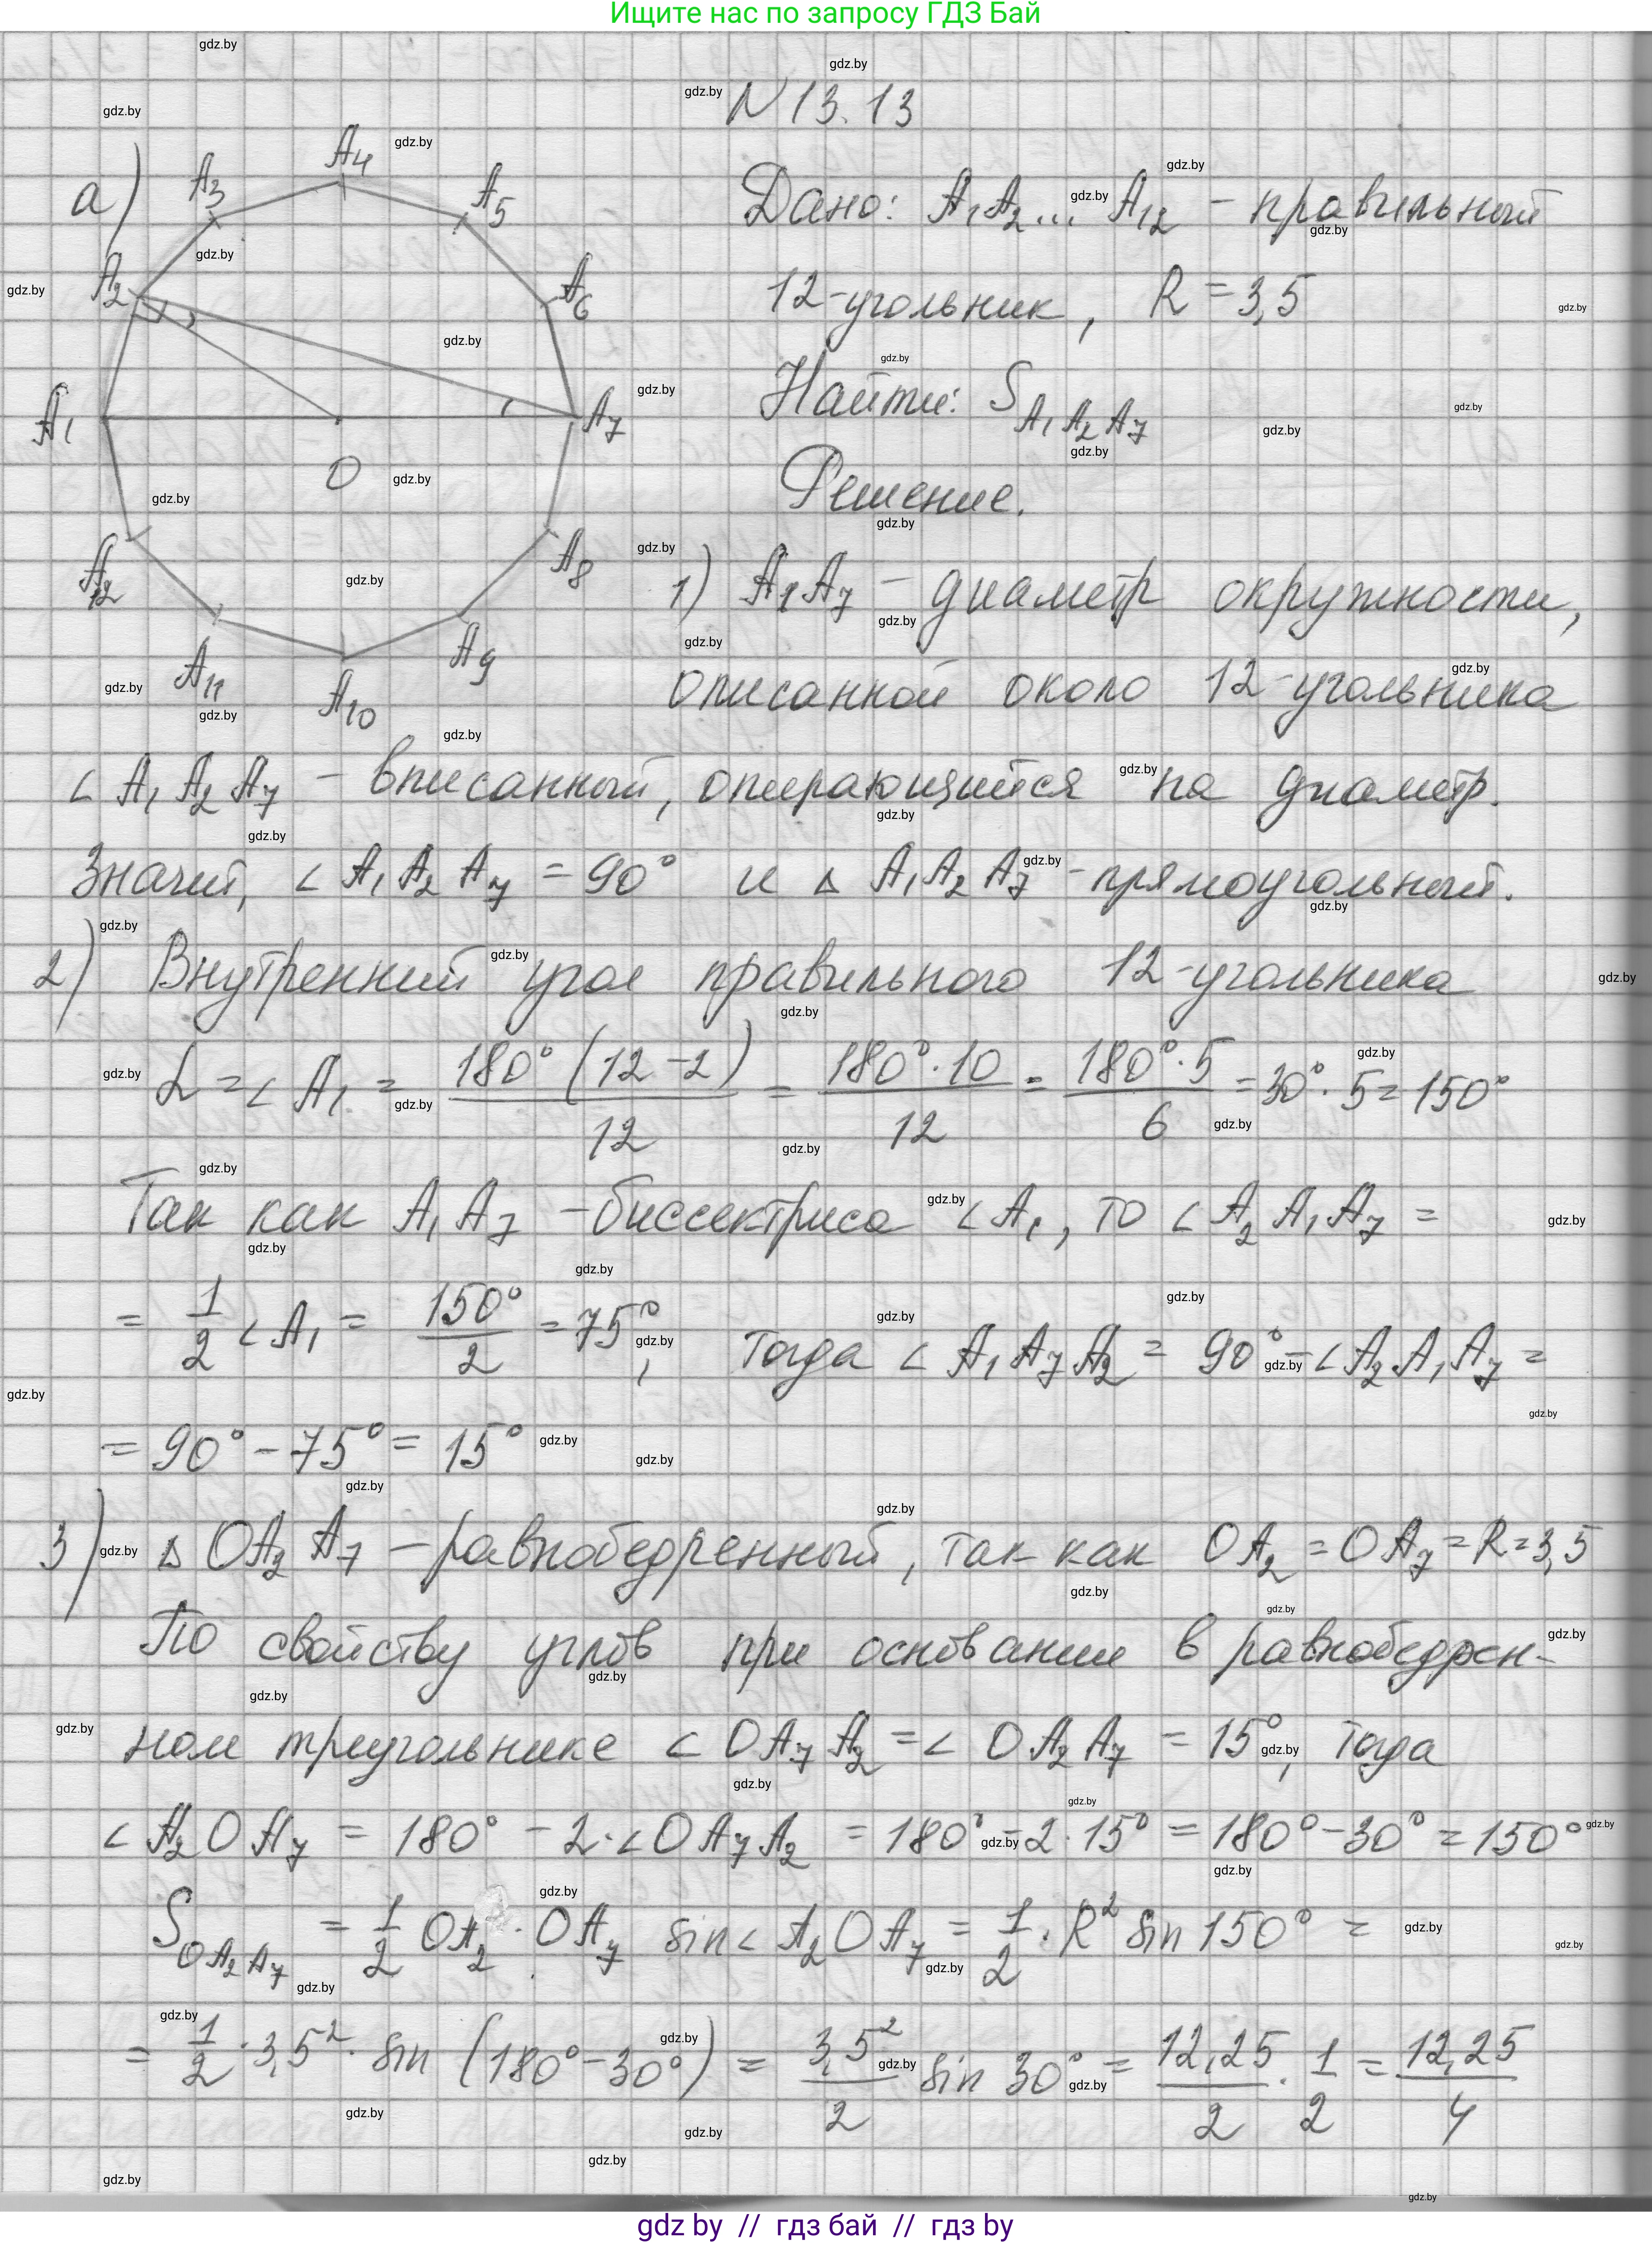 Ищите нас по запросу ГДЗ Бай
N 13.13
а)
A₁
A₂
A₃
A₄
A₅
A₆
A₇
A₈
A₉
A₁₀
A₁₁
A₁₂
O
Дано: A₁A₂... A₁₂ - правильный
12-угольник, R = 3,5
Найти: S A₁A₂A₇
Решение.
1) A₁A₇ - диаметр окружности,
описанной около 12-угольника
∠A₁A₂A₇ - вписанный, опирающийся на диаметр.
Значит, ∠A₁A₂A₇ = 90° и △A₁A₂A₇ - прямоугольный.
2) Внутренний угол правильного 12-угольника
α = ∠A₁ = 180°(12-2)/12 = 180°·10/12 = 180°·5/6 = 30°·5 = 150°
Так как A₁A₇ - биссектриса ∠A₁, то ∠A₂A₁A₇ =
= 1/2 ∠A₁ = 150°/2 = 75°, Тогда ∠A₁A₇A₂ = 90° - ∠A₂A₁A₇ =
= 90° - 75° = 15°
3) △OA₂A₇ - равнобедренный, так как OA₂ = OA₇ = R = 3,5
По свойству углов при основании в равнобедрен-
ном треугольнике ∠OA₇A₂ = ∠OA₂A₇ = 15°, Тогда
∠A₂OA₇ = 180° - 2·∠OA₇A₂ = 180° - 2·15° = 180° - 30° = 150°
S OA₂A₇ = 1/2 OA₂·OA₇ sin∠A₂OA₇ = 1/2·R² sin150° =
= 1/2·3,5²·sin(180°-30°) = 3,5²/2 sin 30° = 12,25/2 · 1/2 = 12,25/4
gdz by // гдз бай // гдз by